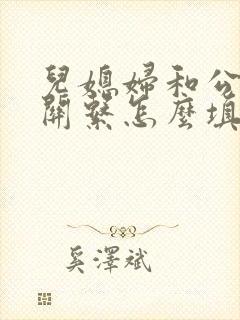 兒媳婦和公
關繫怎麼填
奚澤斌